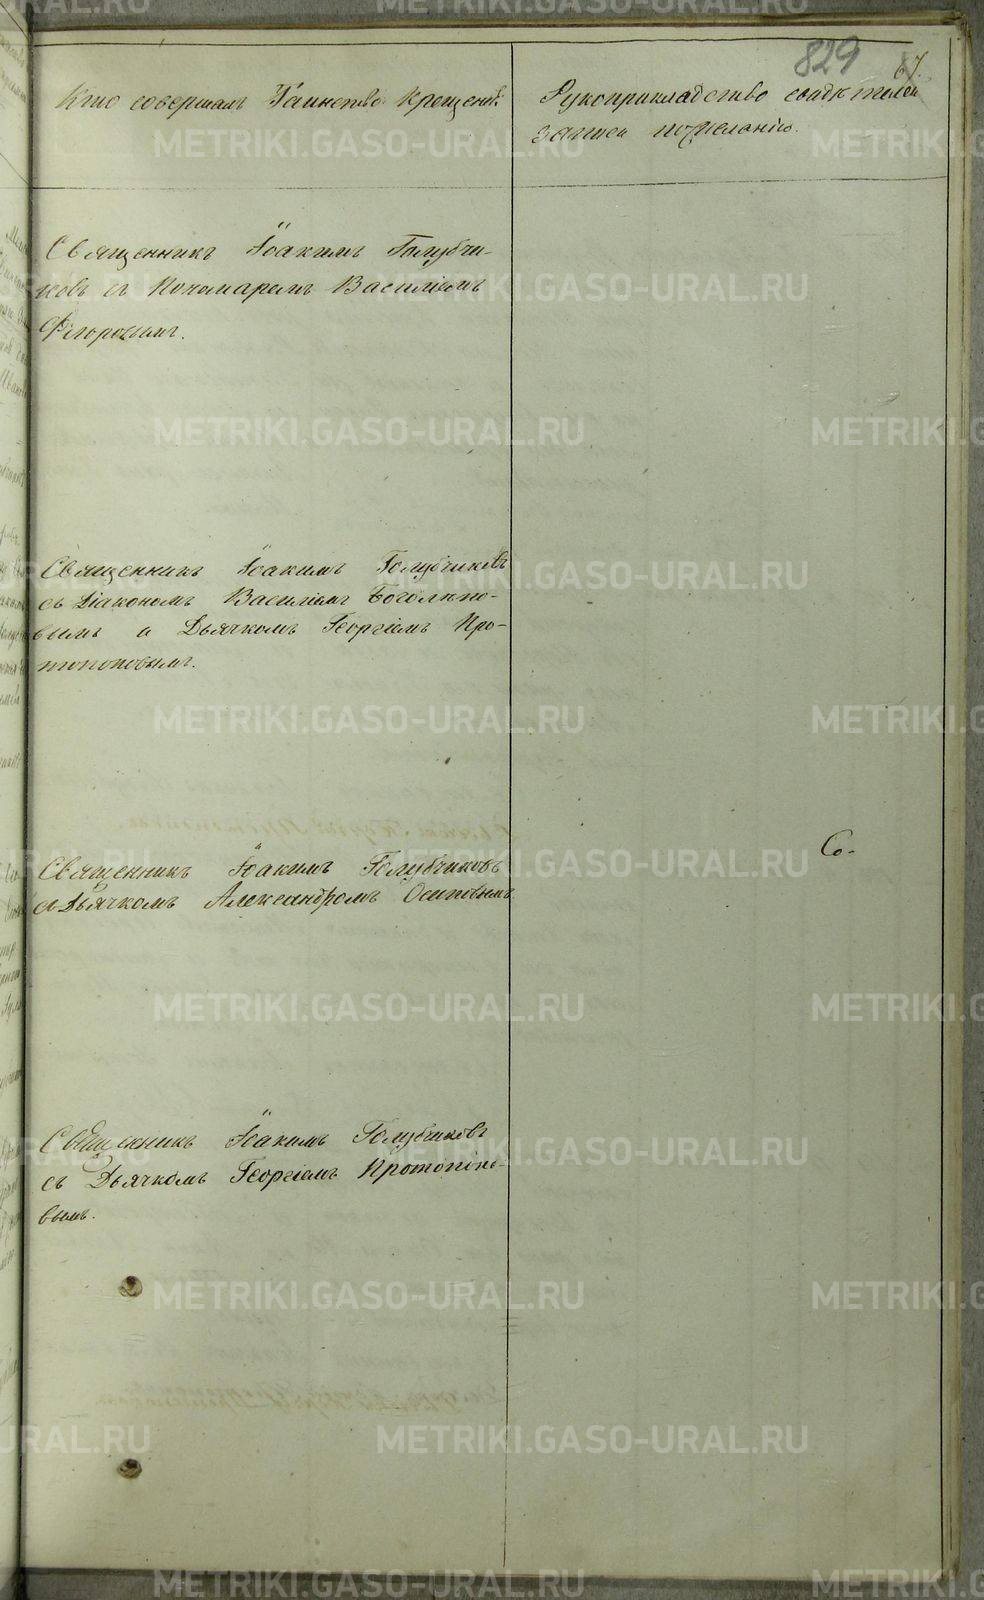 829
67.
Кто совершалъ Таинство Крещенія.
Рукоприкладство свидѣтелей
записи по желанію.
Священникъ Іоакимъ Голубчи-
ковъ съ Пономаремъ Василіемъ
Флоровымъ.
Священникъ Іоакимъ Голубчиковъ
съ Діакономъ Василіемъ Боголюбо-
вымъ и Дьячкомъ Георгіемъ Про-
топоповымъ.
Священникъ Іоакимъ Голубчиковъ
съ Дьячкомъ Александромъ Осиповымъ
Со-
Священникъ Іоакимъ Голубчиковъ
съ Дьячкомъ Георгіемъ Протопопо-
вымъ.
METRIKI.GASO-URAL.RU